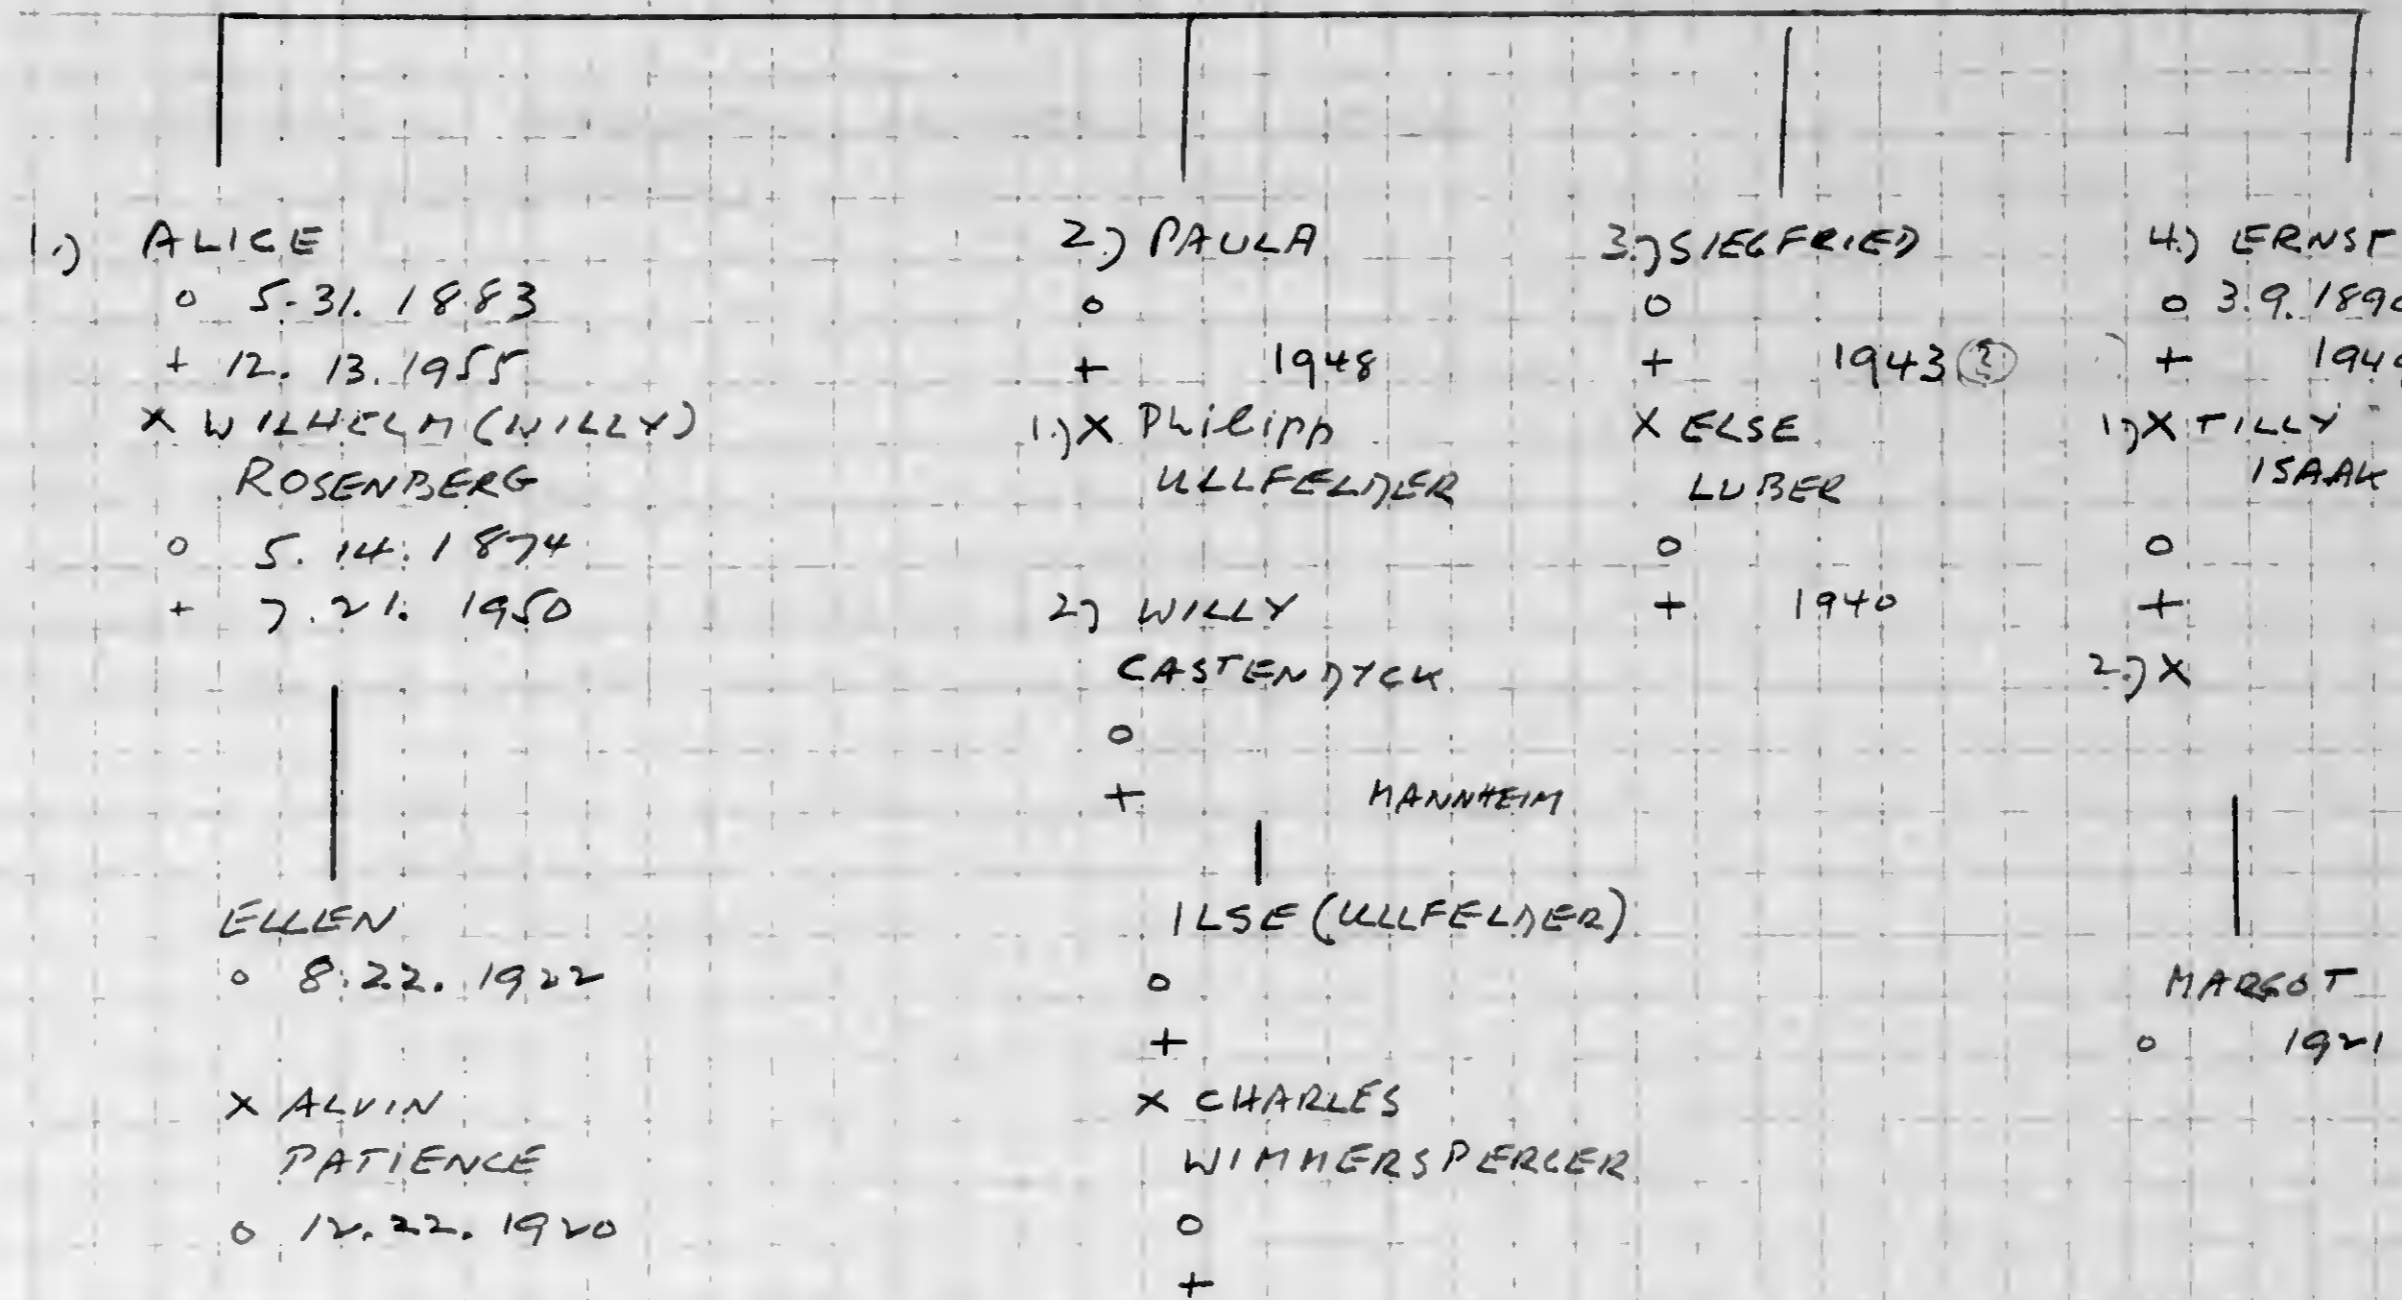 1.) ALICE
o 5.31.1883
+ 12.13.1955
X WILHELM (WILLY)
ROSENBERG
o 5.14.1874
+ 7.21.1950
ELLEN
o 8.22.1922
X ALVIN
PATIENCE
o 12.22.1920
2.) PAULA
o
+ 1948
1.) X Philipp
ULLFELDER
2.) WILLY
CASTENDYCK
o
+ MANNHEIM
ILSE (ULLFELDER)
o
+
X CHARLES
WIMMERSPERGER
o
+
3.) SIEGFRIED
o
+ 1943 (?)
X ELSE
LUBER
o
+ 1940
4.) ERNST
o 3.9.189
+ 194
1.) X TILLY
ISAAK
o
+
2.) X
MARGOT
o 1921